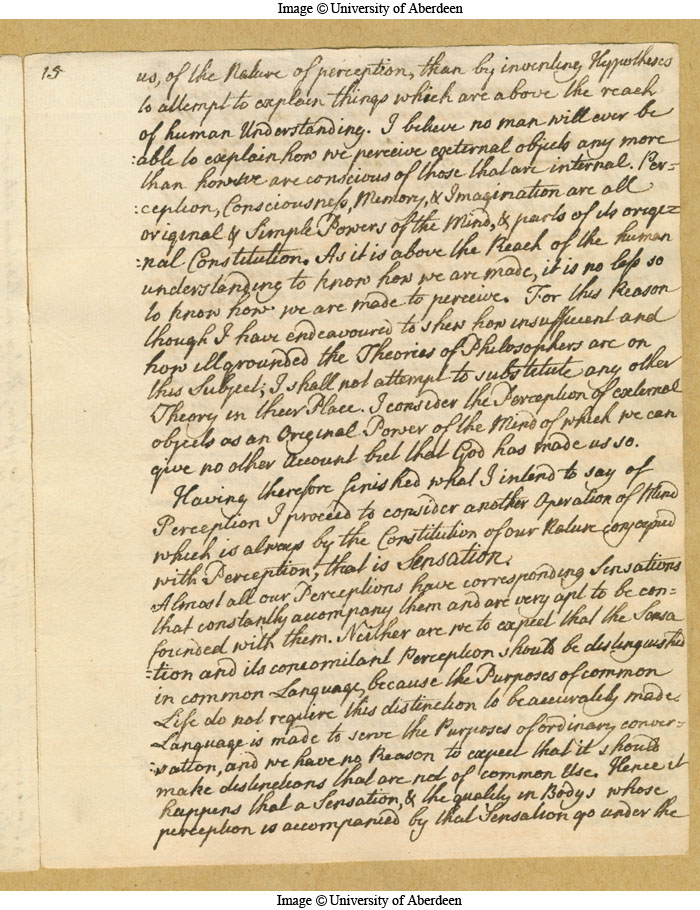 Image © University of Aberdeen
15
us, of the Nature of perception, than by inventing Hypotheses
to attempt to explain things which are above the reach
of human Understanding. I believe no man will ever be
:able to explain how we perceive external objects any more
than how we are conscious of those that are internal. Per=
:ception, Consciousness, Memory, & Imagination are all
original & Simple Powers of the Mind, & parts of its origi=
:nal Constitution. As it is above the Reach of the human
understanding to know how we are made, it is no less so
to know how we are made to perceive. For this Reason
though I have endeavoured to shew how insufficient and
how illgrounded the Theories of Philosophers are on
this Subject; I shall not attempt to substitute any other
Theory in their Place. I consider the Perception of external
objects as an Original Power of the Mind of which we can
give no other Account but that God has made us so.
Having therefore finished what I intend to say of
Perception I proceed to consider another Operation of Mind
which is always by the Constitution of our Nature conjoyned
with Perception, that is Sensation.
Almost all our Perceptions have corresponding Sensations
that constantly accompany them and are very apt to be con=
founded with them. Neither are we to expect that the Sensa
=tion and its concomitant Perception should be distinguished
in common Language, because the Purposes of common
Life do not require this distinction to be accurately made.
Language is made to serve the Purposes of ordinary conver=
:sation, and we have no Reason to expect that it should
make distinctions that are not of common Use. Hence it
happens that a Sensation, & the quality in Bodys whose
perception is accompanied by that Sensation go under the
Image © University of Aberdeen